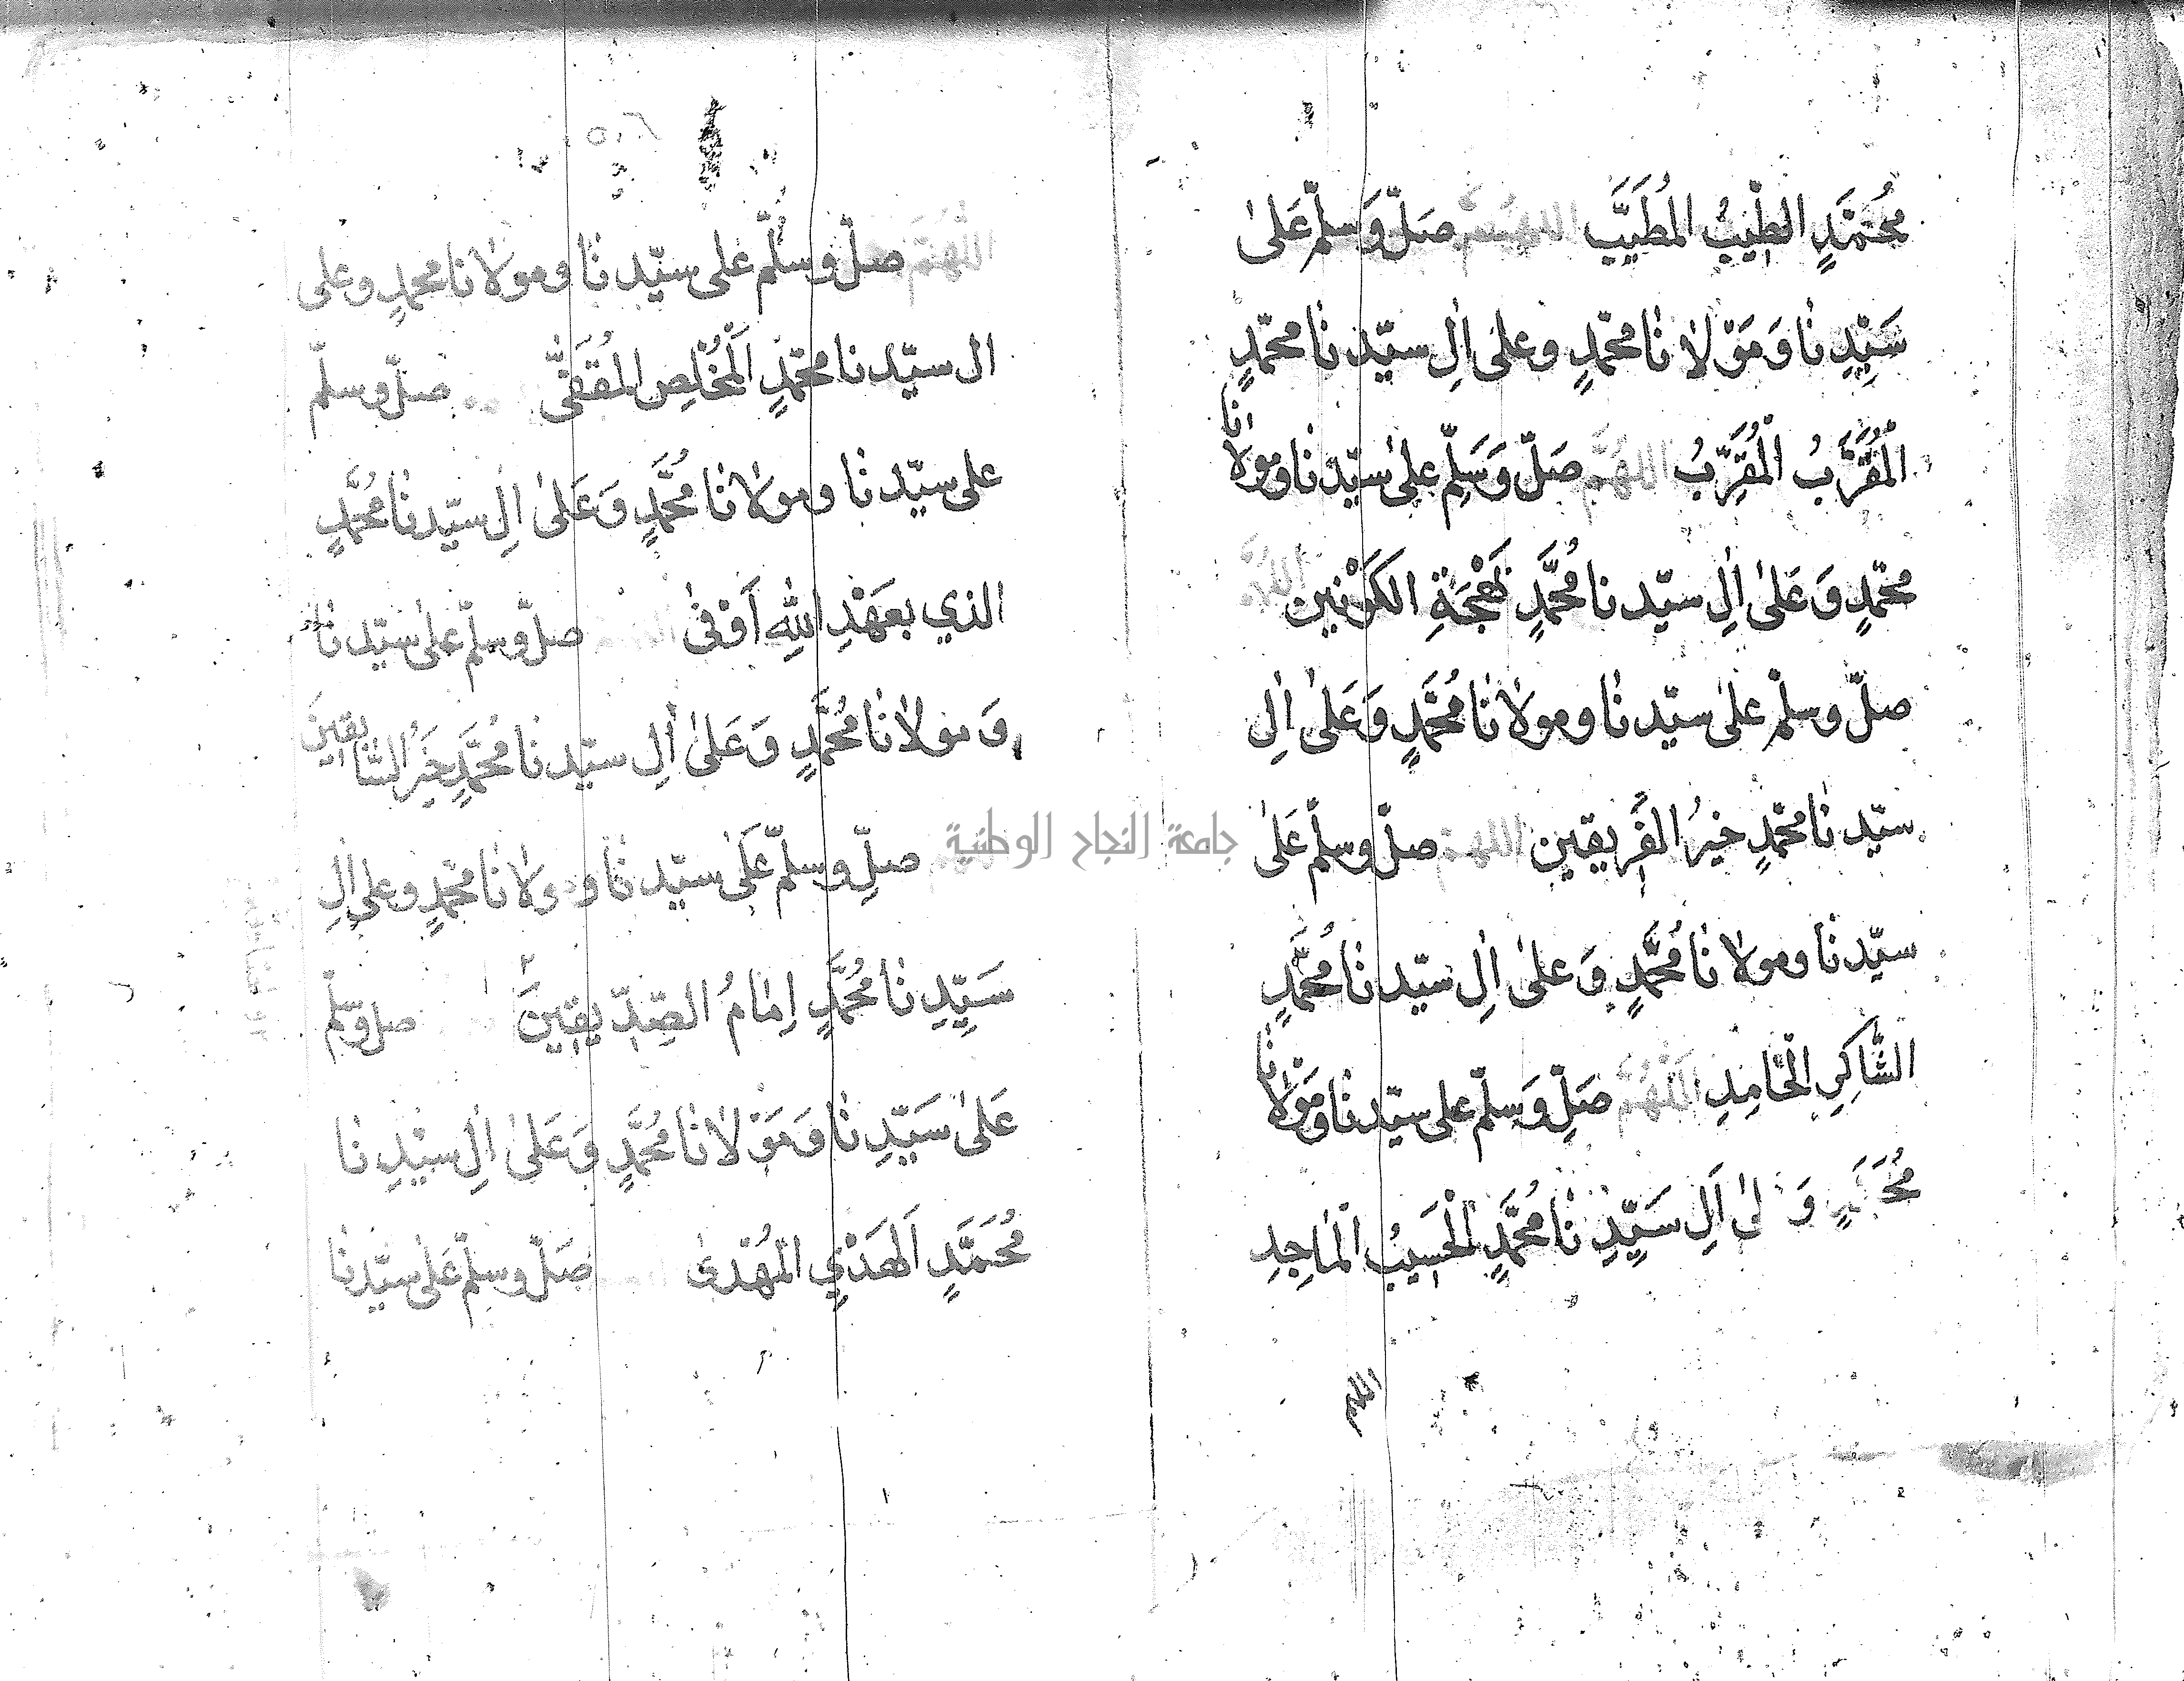 مُحَمَّدٍ الطَّيِّبُ المُطَيَّب اللهم صَلّ وَسلّم عَلىٰ
سَيِّدِنا وَمَوْلانا محمّدٍ وعلى اٰلِ سيّدنا محمّدٍ
الْمُقَرَّبُ الْمُقَرِّبُ اللهُمَّ صَلّ وَسَلِّم علىٰ سيّدنا ومولانا
محمّدٍ وَعَلىٰ اٰلِ سيّدنا مُحَمَّدٍ بَهْجَةِ الكَوْنَيْن اللهم
صلّ وسلّم علىٰ سيّدنا ومولانا مُحَمَّدٍ وَعَلىٰ اٰلِ
سيّدنا محمّدٍ خيرُ الفَريقين اللهم صلّ وسلّم عَلىٰ
سيّدنا ومولانا مُحَمَّدٍ وَعلىٰ اٰلِ سيّدنا مُحَمَّدٍ
الشَّاكِرِ الْحَامِدِ اَللّٰهُمَّ صَلِّ وَسلّم على سيّدنا ومَوْلانا
مُحَمَدٍ وَ لىٰ اَلِ سَيِّدِنا مُحَمَّدٍ الْحَسِيبُ الْمَاجِدِ
اللهم
اللهمّ صلّ وسلّم على سيّدنا ومولانا محمدٍ وعلى
ال سيّدنا محمّدٍ اَلْمُخْلِص المُقَفّى صلّ وسلّم
على سيّدنا ومولانا مُحَمَّدٍ وَعَلىٰ اٰلِ سيّدنا مُحَمَّدٍ
الذي بعَهْدِ اللهِ اَوْفىٰ صلّ وسلّم علىٰ سيّدنا
وَمولانا مُحَمَّدٍ وَعَلىٰ اٰلِ سيّدنا مُحَمَّدٍ خَيرُ السَّابقين
صلِّ وسلِّم عَلىٰ سيّدنا ومولانا محمّدٍ وعلى اٰلِ
سَيِّدِنا مُحَمَّدٍ اِمَامُ الصِّدّيقينَ صل وسلّم
عَلىٰ سَيّدِنا وَمَوْلانا مُحَمَّدٍ وَعَلىٰ اٰلِ سيّدِنا
مُحَمَّدٍ اَلْهَدْيِ المُهْدىٰ صَلّ وسلّم عَلىٰ سيّدنا
جامعة النجاح الوطنية